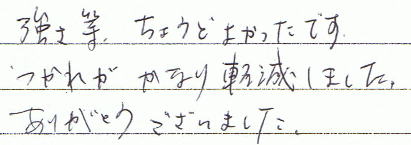 強さ等、ちょうどよかったです.
つかれが かなり軽減しました。
ありがとうございました。